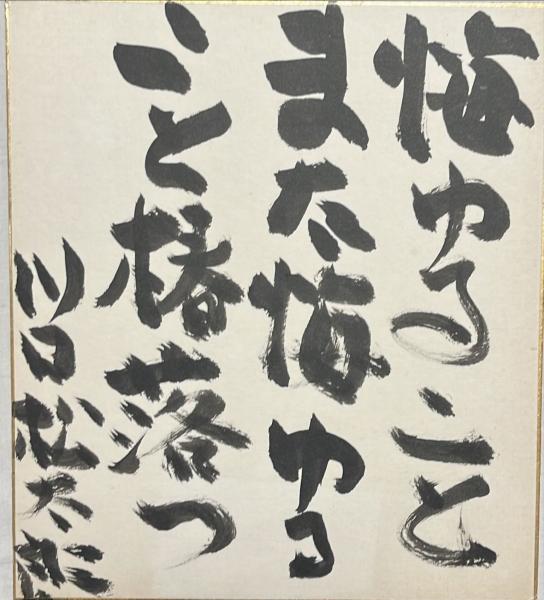 悔ゆること
また悔ゆる
こと椿落つ
川口松太郎